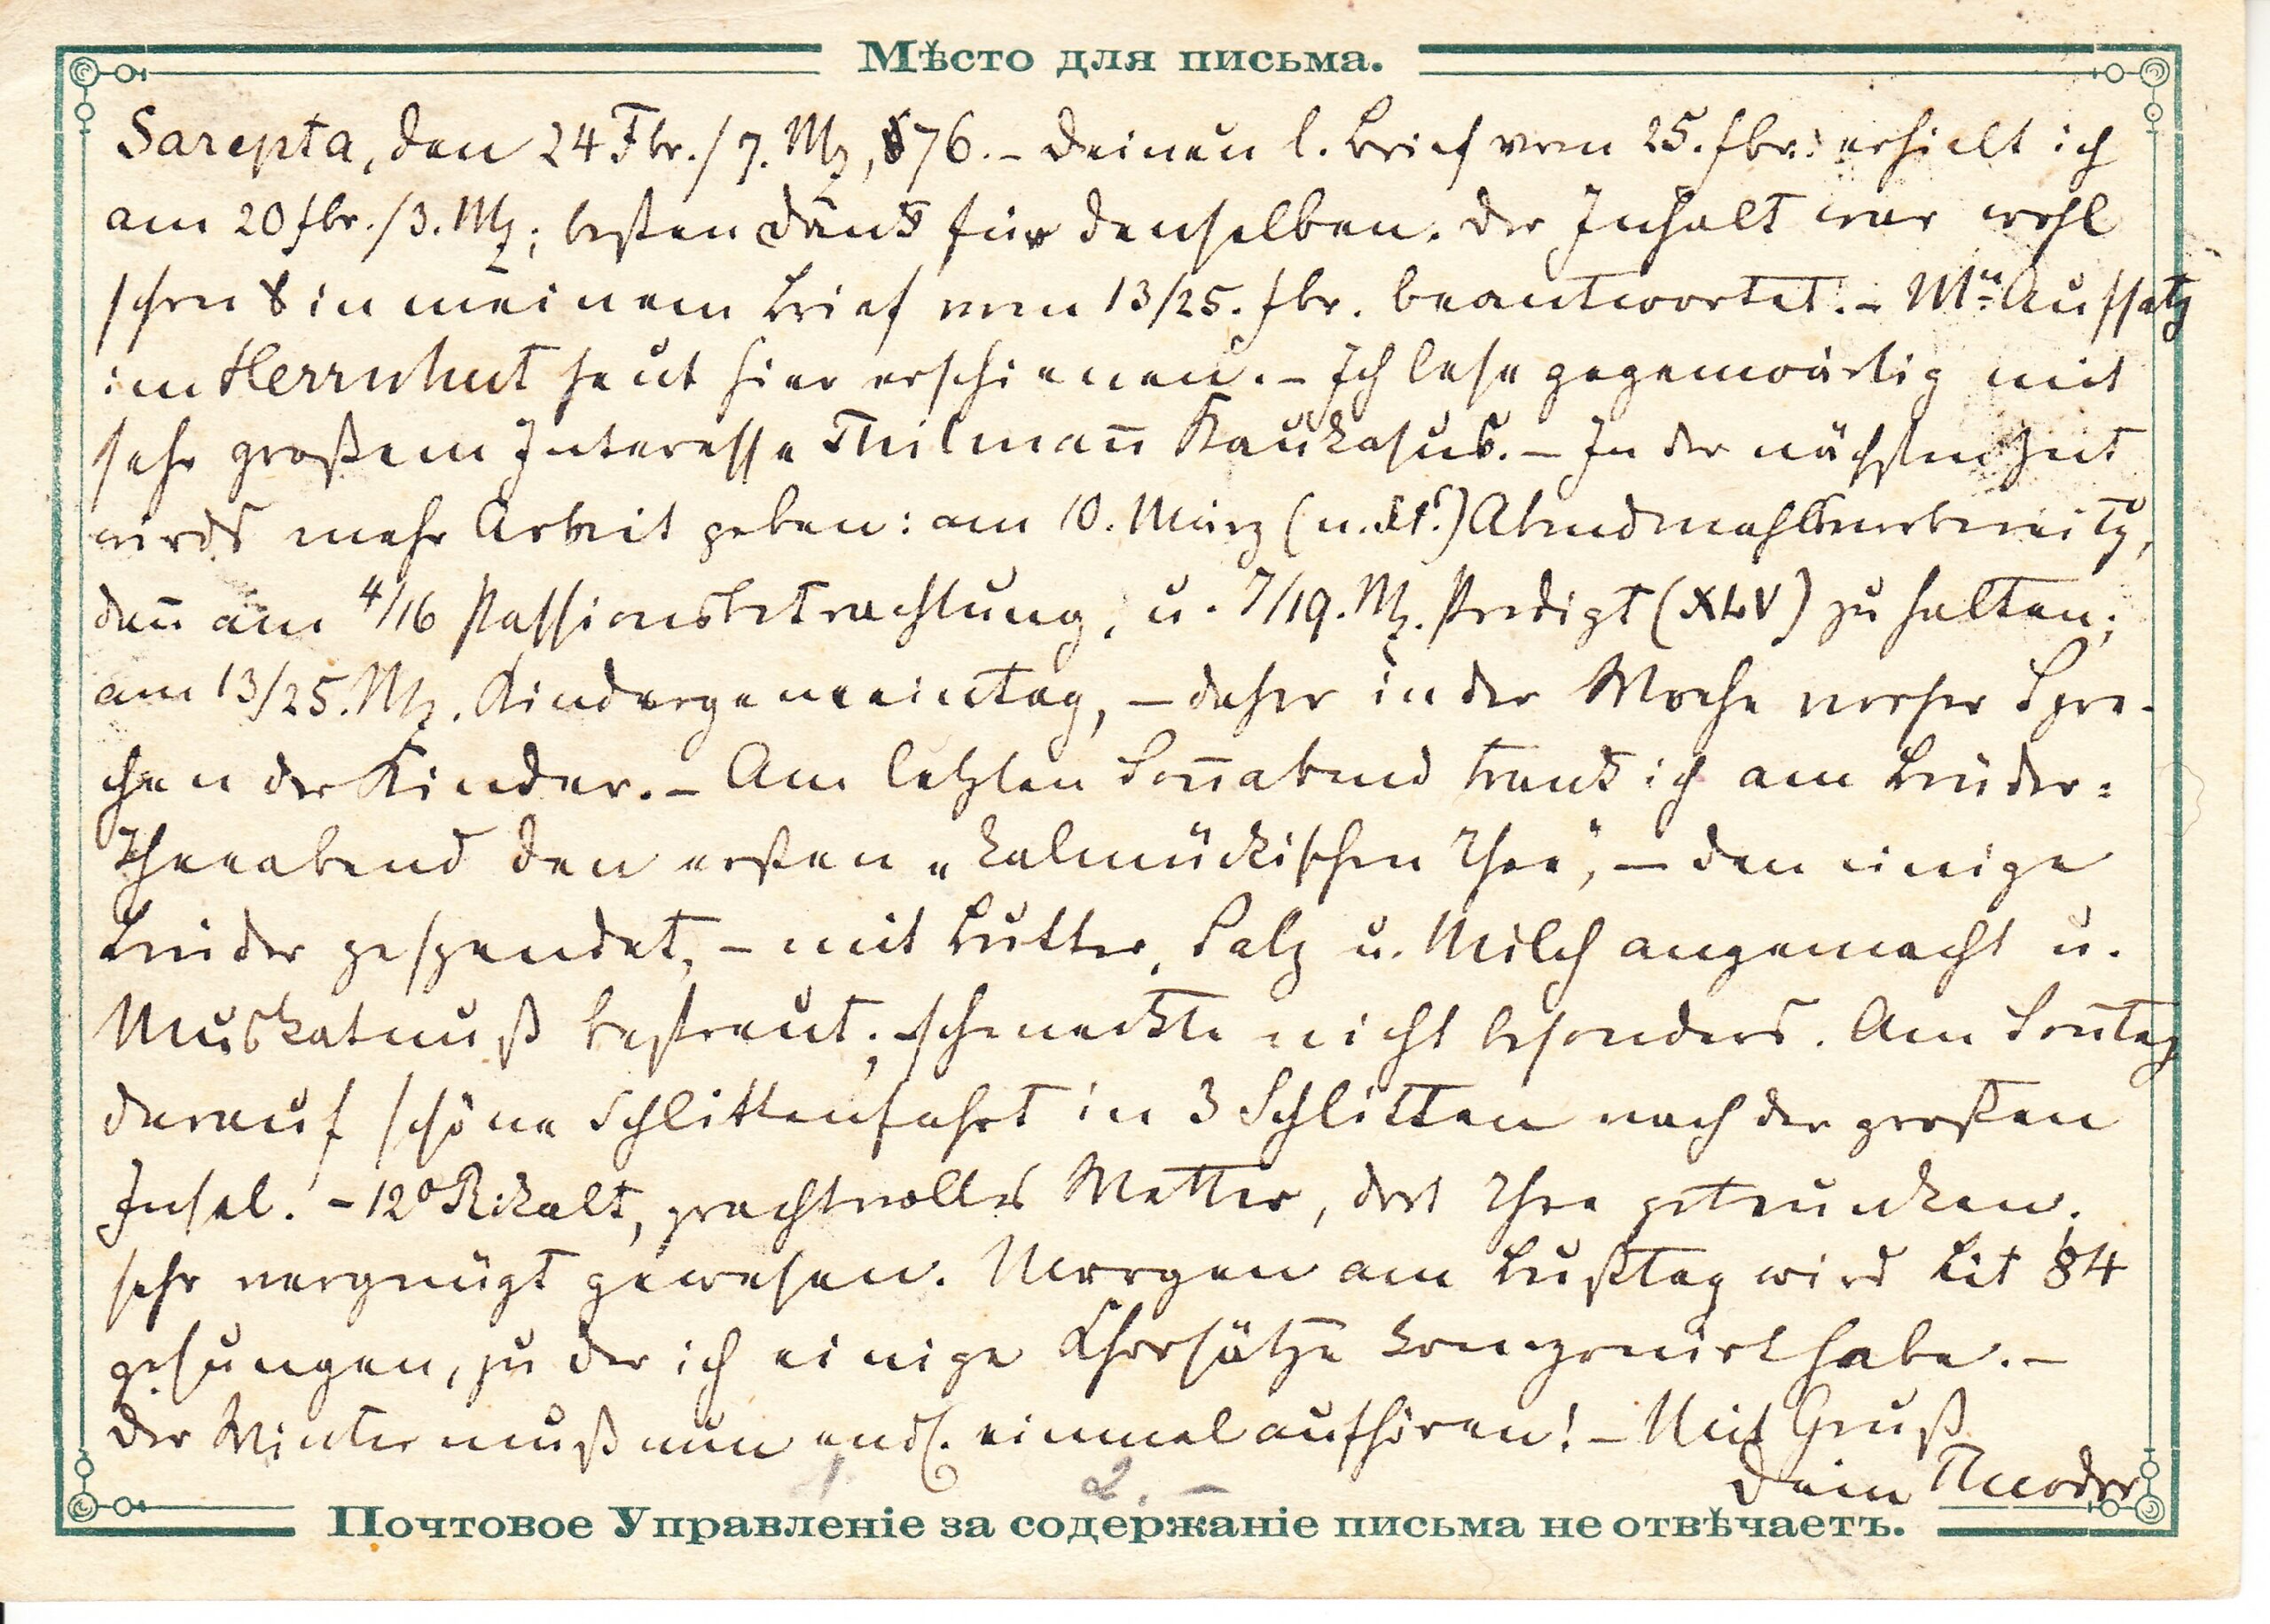 Мѣсто для письма.
Sarepta, den 24 Fbr./7. Mz, 876. – Deinen l. Brief vom 25. fbr. erhielt ich
am 20 fbr./3. Mz; besten Dank für denselben. Der Inhalt war wohl
schon in meinem Brief vom 13/25. fbr. beantwortet. – Mn Aufsatz
im Herrnhut heut hier erschienen. – Ich lese gegenwärtig mit
sehr großem Interesse Thilmañ Kaukasus. – In der nächsten Zeit
wirds mehr Arbeit geben: am 10. März (n. St.) Abendmahls
dañ am 4/16 Passionsbetrachtung, u. 7/19. Mz. Predigt (XLV) zu halten;
am 13/25. Mz. Kindergemeintag, – daher in der Woche vorher Spre-
chen der Kinder. – Am letzten Soñabend trank ich am Brüder=
Theeabend den ersten „kalmückischen Thee“, – den einige
Brüder gespendet, – mit Butter, Salz u. Milch angemacht u.
Muskatnuß bestreut; – schmeckte nicht besonders. Am Soñtag
darauf schöne Schlittenfahrt in 3 Schlitten nach der großen
Insel. – 12° R. kalt, prachtvolles Wetter, dort Thee getrunken;
sehr vergnügt gewesen. Morgen am Bußtag wird Lit 84
gesungen, zu der ich einige Chorsätze komponirt habe. –
Der Winter muß nun endl. einmal aufhören! – Mit Gruß
Dein Theodor
2. –
Почтовое Управленіе за содержаніе письма не отвѣчаетъ.